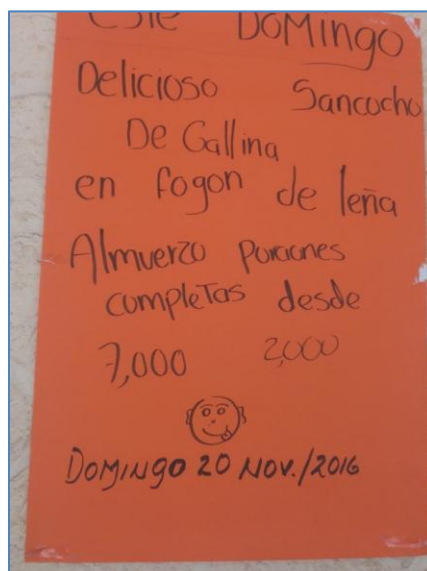 Este DoMingo
Delicioso Sancocho
De Gallina
en fogon de leña
Almuerzo porciones
completas desde
7,000 2,000
DOMINGO 20 NOV./2016